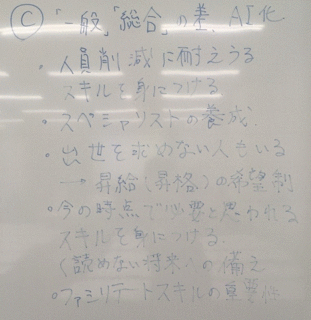 Ⓒ「一般」「総合」の差、AI化
・人員削減に耐えうる
スキルを身につける
・スペシャリストの養成.
・出世を求めない人もいる
→ 昇給(昇格)の希望制
・今の時点で必要と思われる
スキルを身につける.
〈読めない将来〉の備え
・ファシリテートスキルの重要性